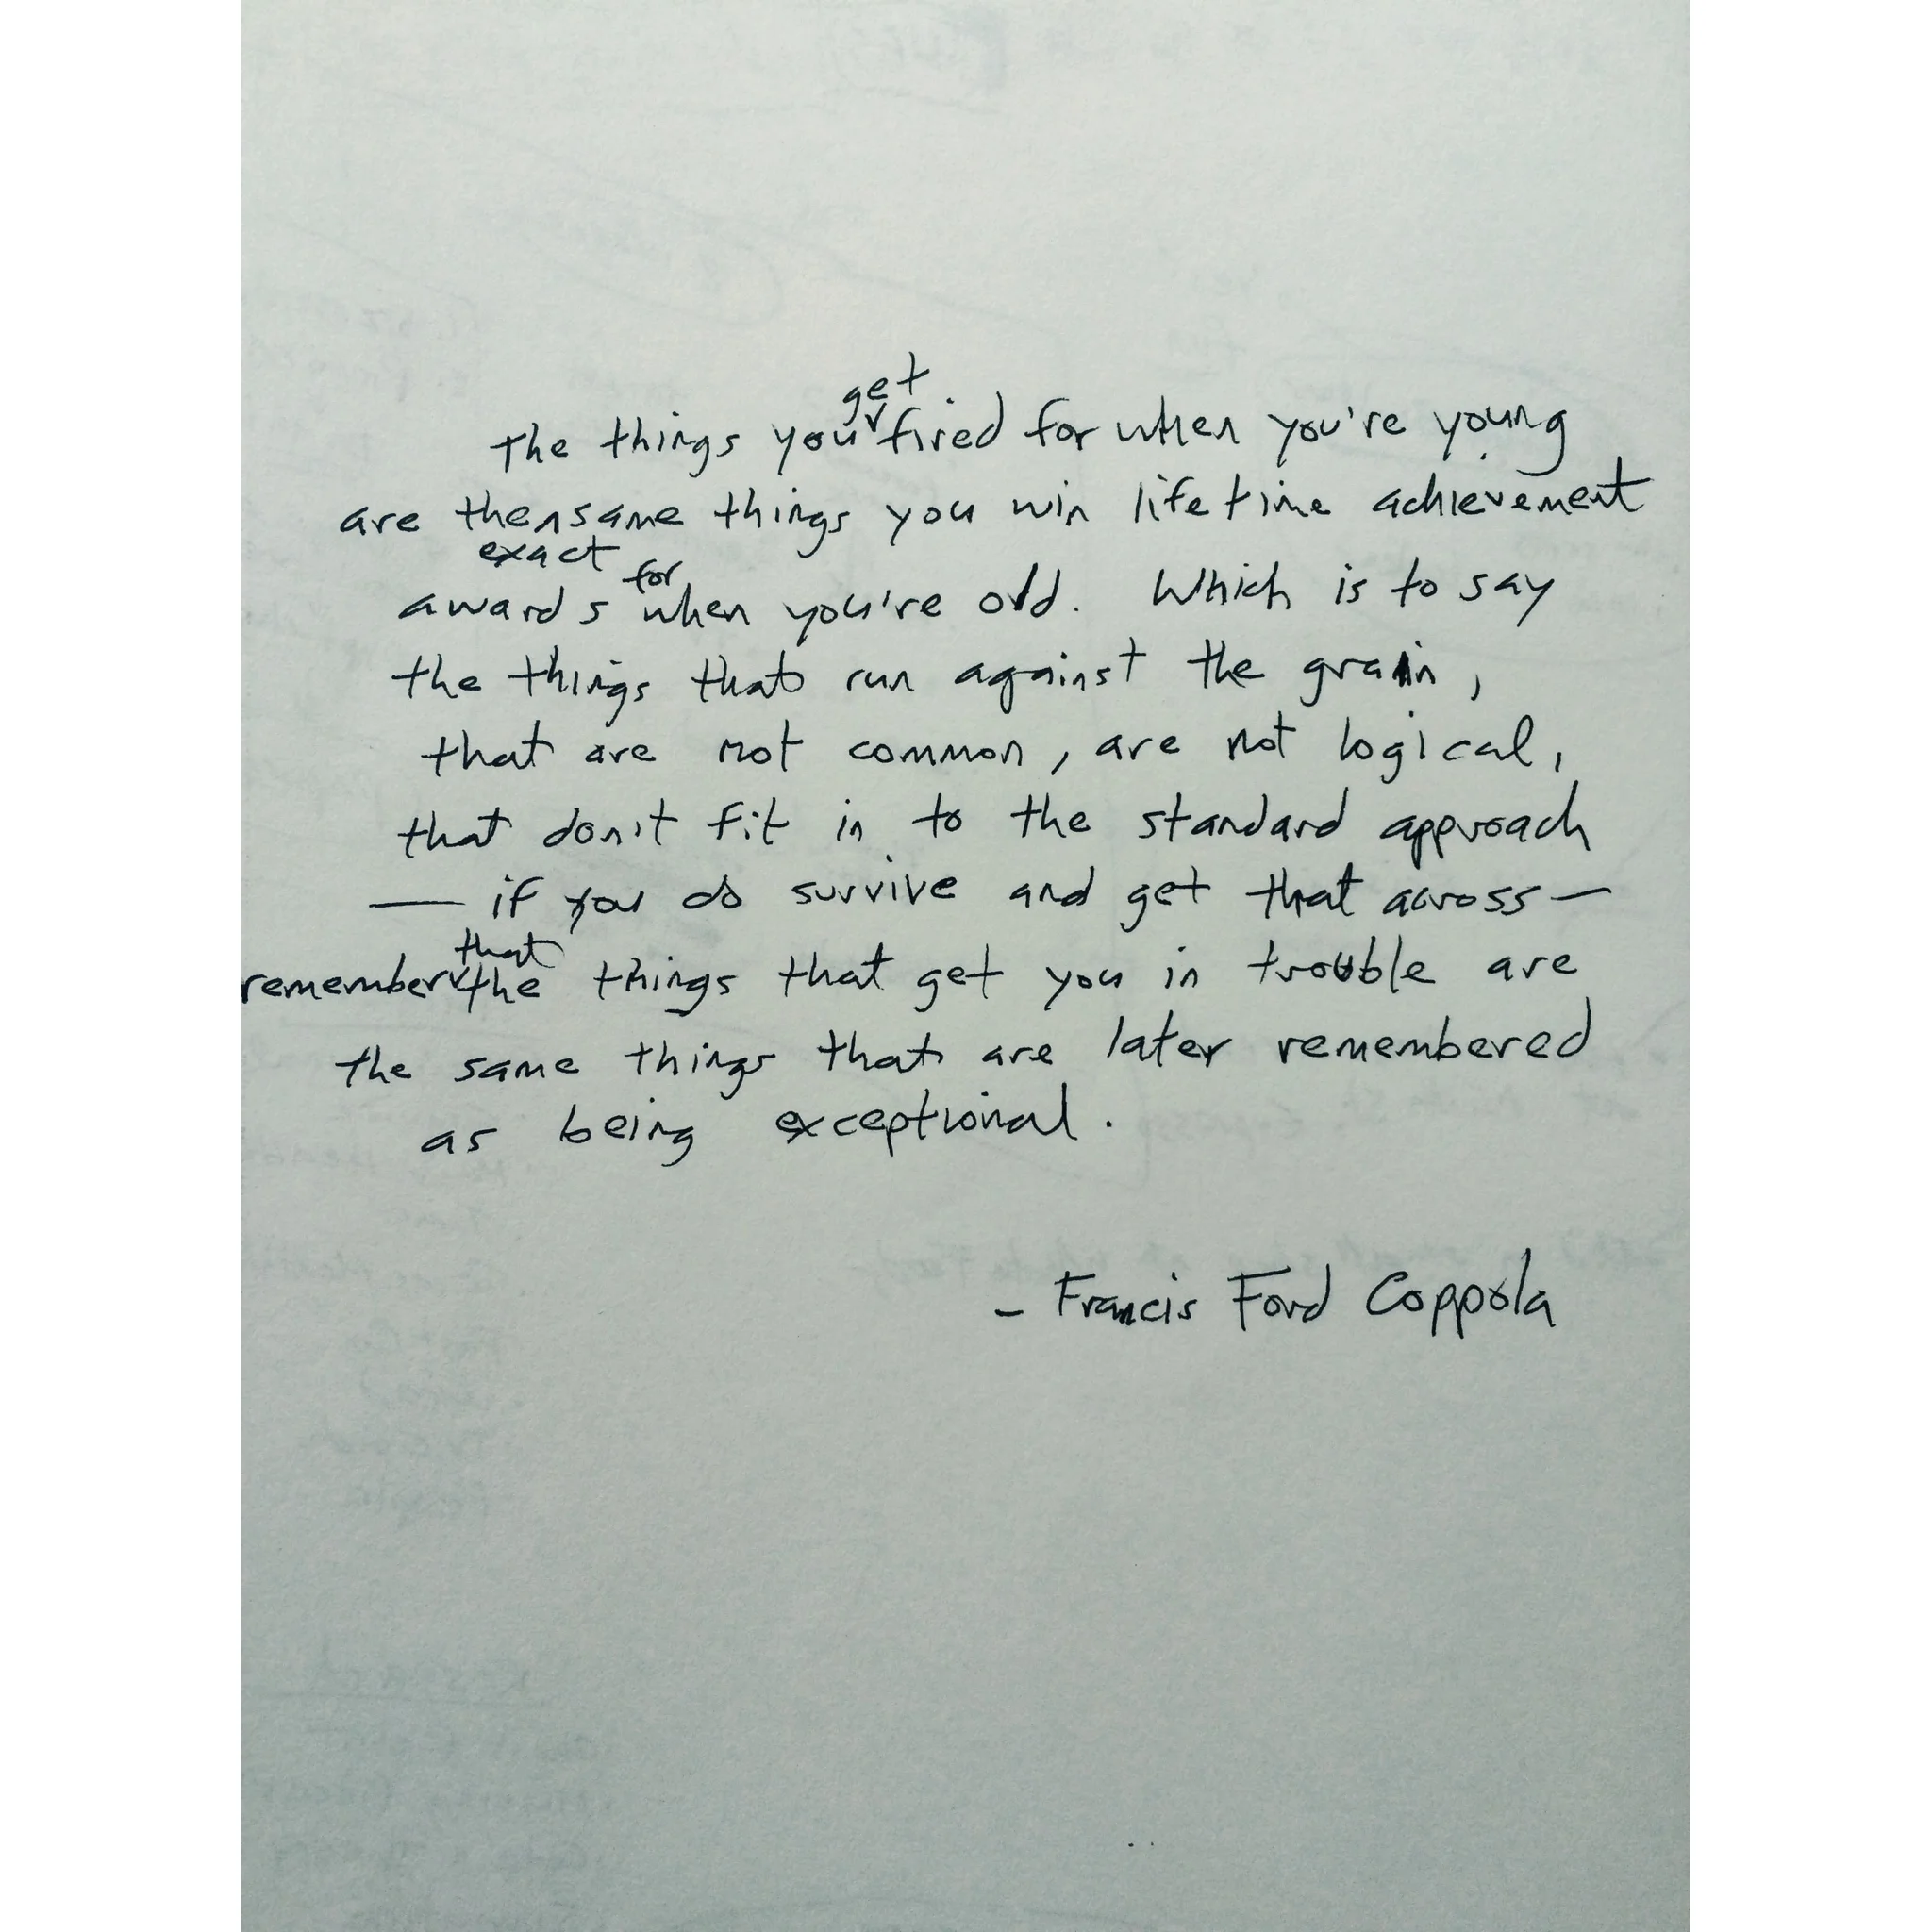 The things you get fired for when you're young
are the exact same things you win lifetime achievement
awards for when you're old. Which is to say
the things that run against the grain,
that are not common, are not logical,
that don't fit in to the standard approach
— if you do survive and get that across —
remember that the things that get you in trouble are
the same things that are later remembered
as being exceptional.
- Francis Ford Coppola